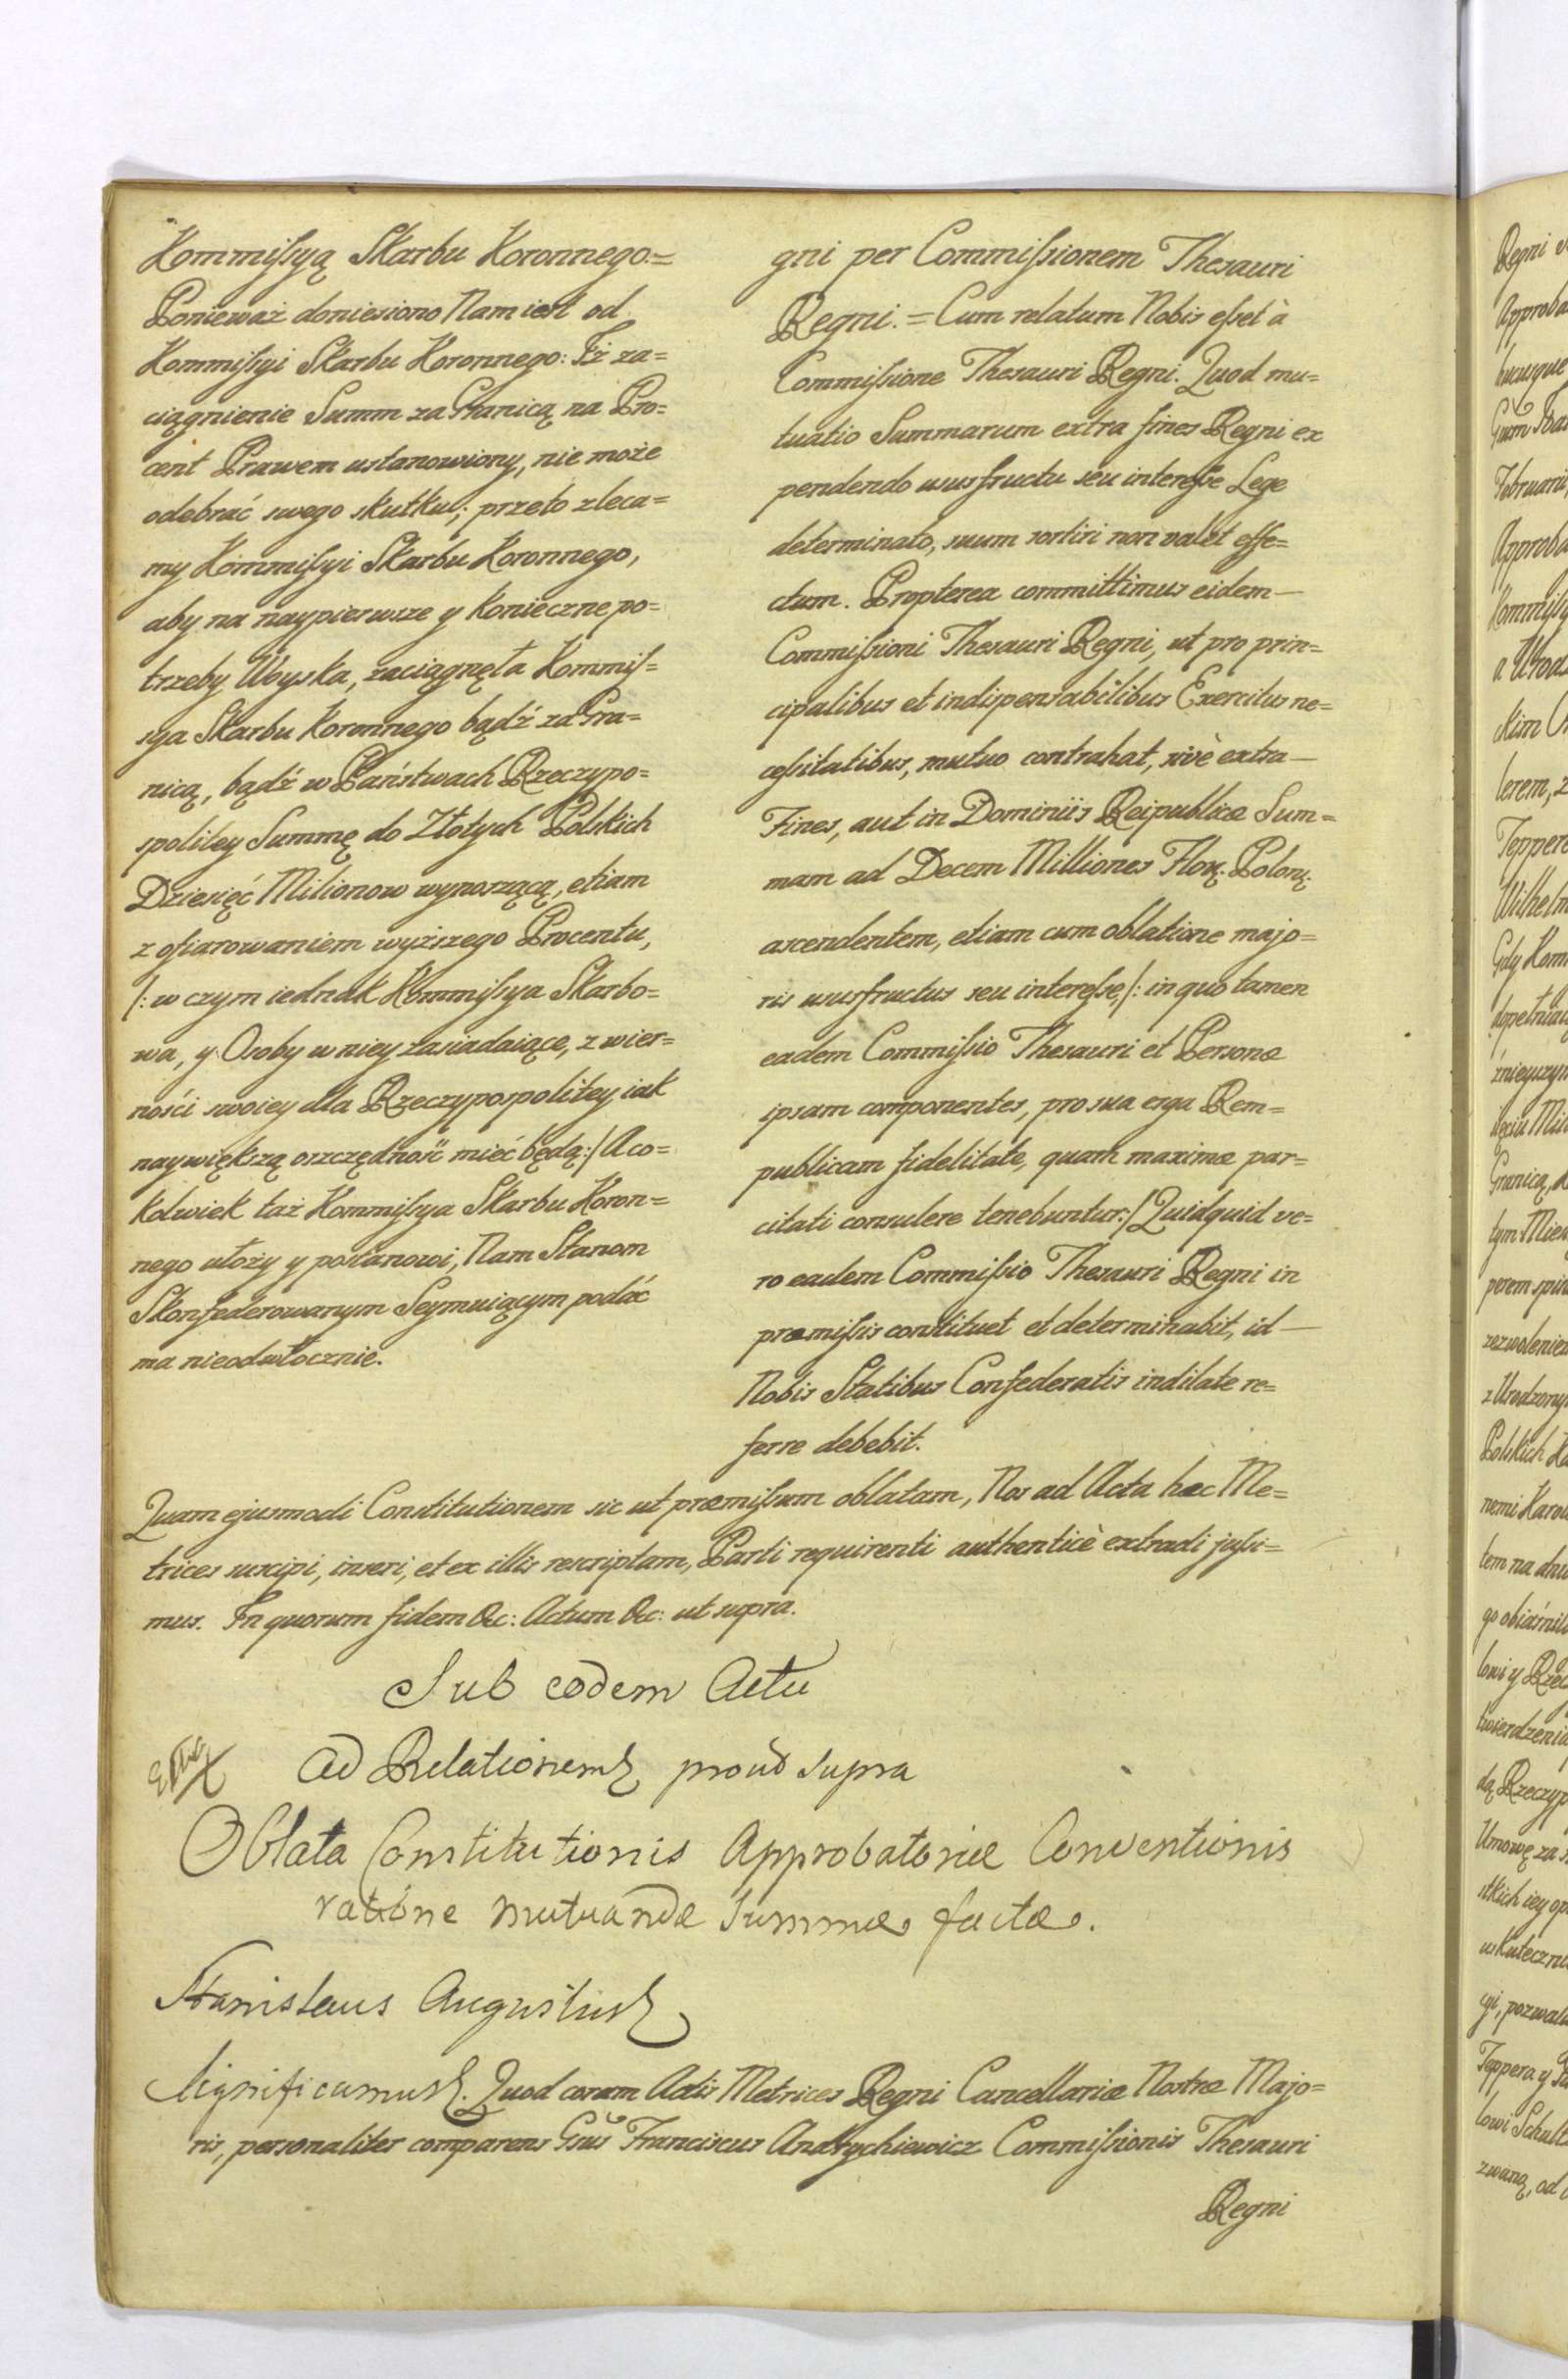 Kommiſsyą Skarbu Koronnego.=
Ponieważ doniesiono Nam iest od
Kommiſsyi Skarbu Koronnego: Iż za=
ciągnienie Summ za Granicą na Pro=
cent Prawem ustanowiony, nie może
odebrać swego skutku; przeto zleca=
my Kommiſsyi Skarbu Koronnego,
aby na naypierwsze y konieczne po=
trzeby Woyska, zaciągnęła Kommiſ=
sya Skarbu Koronnego bądź za Gra=
nicą, bądź w Państwach Rzeczypo=
spolitey Summę do Złotych Polskich
Dziesięć Milionow wynoszącą, etiam
z ofiarowaniem wyższego Procentu,
/: w czym iednak Kommiſsya Skarbo=
wa, y Osoby w niey zasiadaiące, z wier=
ności swoiey dla Rzeczypospolitey iak
naywiększą oszczędność mieć będą:/ A co=
kolwiek taż Kommiſsya Skarbu Koron=
nego ułoży y postanowi, Nam Stanom
Skonfederowanym Seymuiącym podać
ma nieodwłocznie.
gni per Commiſsionem Thesauri
Regni. = Cum relatum Nobis eſset à
Commiſsione Thesauri Regni. Quod mu=
tuatio Summarum extra fines Regni ex
pendendo ususfructu seu intereſse Lege
determinato, suum sortiri non valet effe=
ctum. Propterea committimus eidem —
Commiſsioni Thesauri Regni, ut pro prin=
cipalibus et indispensabilibus Exercitus ne=
ceſsitatibus, mutuo contrahat, sivè extra —
Fines, aut in Dominiis Reipublicæ Sum=
mam ad Decem Milliones Flor. Polon.
ascendentem, etiam cum oblatione majo=
ris ususfructus seu intereſse, /: in quo tamen
eadem Commiſsio Thesauri et Personæ
ipsam componentes, pro sua erga Rem=
publicam fidelitate, quam maximæ par=
citati consulere tenebuntur:/ Quidquid ve=
ro eadem Commiſsio Thesauri Regni in
præmiſsis constituet et determinabit, id —
Nobis Statibus Confederatis indilate re=
ferre debebit.
Quam ejusmodi Constitutionem sic ut præmiſsum oblatam, Nos ad Acta hæc Me=
trices suscipi, inseri, et ex illis rescriptam, Parti requirenti authenticè extradi juſsi=
mus. In quorum fidem &c: Actum &c: ut supra.
Sub eodem Actu
Ad Relationem prout supra
Oblata Constitutionis Approbatoriæ Conventionis
ratione mutuandæ Summæ factæ.
Stanislaus Augustus
Significamus. Quod coram Actis Metrices Regni Cancellariæ Nostræ Majo=
ris, personaliter comparens Gsus Franciscus Andrychiewicz Commiſsionis Thesauri
Regni